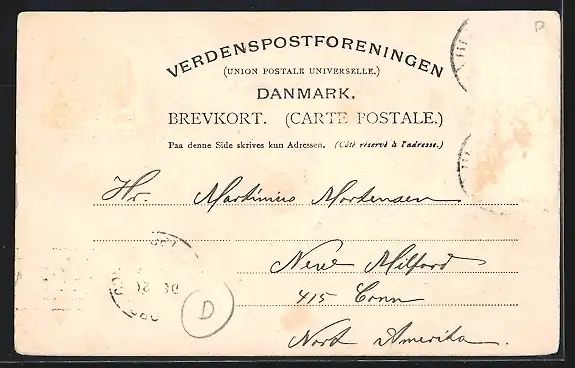 D
VERDENSPOSTFORENINGEN
(UNION POSTALE UNIVERSELLE.)
DANMARK.
BREVKORT. (CARTE POSTALE.)
Paa denne Side skrives kun Adressen. (Côté réservé à l'adresse.)
Hr. Martinius Mortensen
New Milford
415 Conn
Nort Amerika.
D